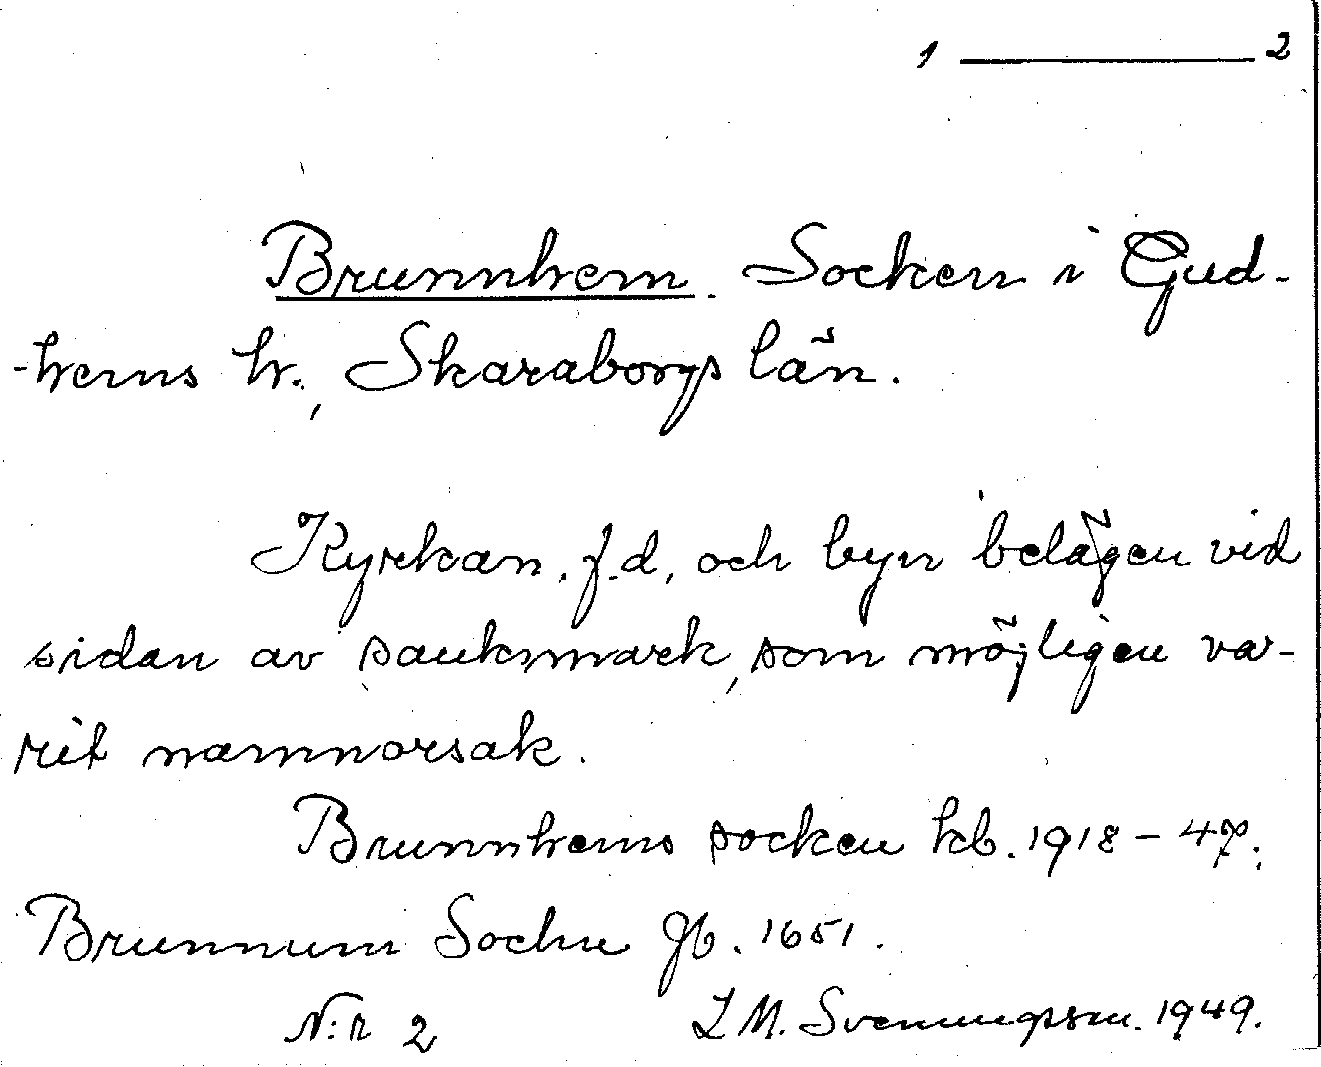 1 ——— 2
Brunnhem. Socken i Gud-
-hems hr., Skaraborgs län.
Kyrkan, f.d, och byn belägen vid
sidan av sankmark, som möjligen va-
rit namnorsak.
Brunnhems socken kb. 1918 – 47.
Brunnum Sochn Jb. 1651.
N:r 2 L M. Svenungsson. 1949.